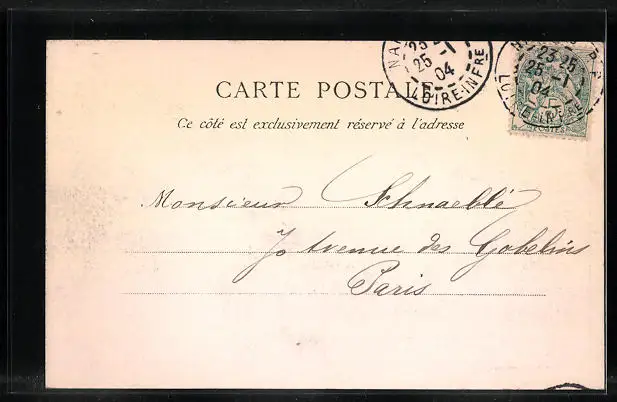 NA
23 25
25 -1
04
LOIRE-INFRE
23 25
25 -1
04
CARTE POSTALE
Ce côté est exclusivement réservé à l'adresse
Monsieur Schnaeblé
70 Avenue des Gobelins
Paris